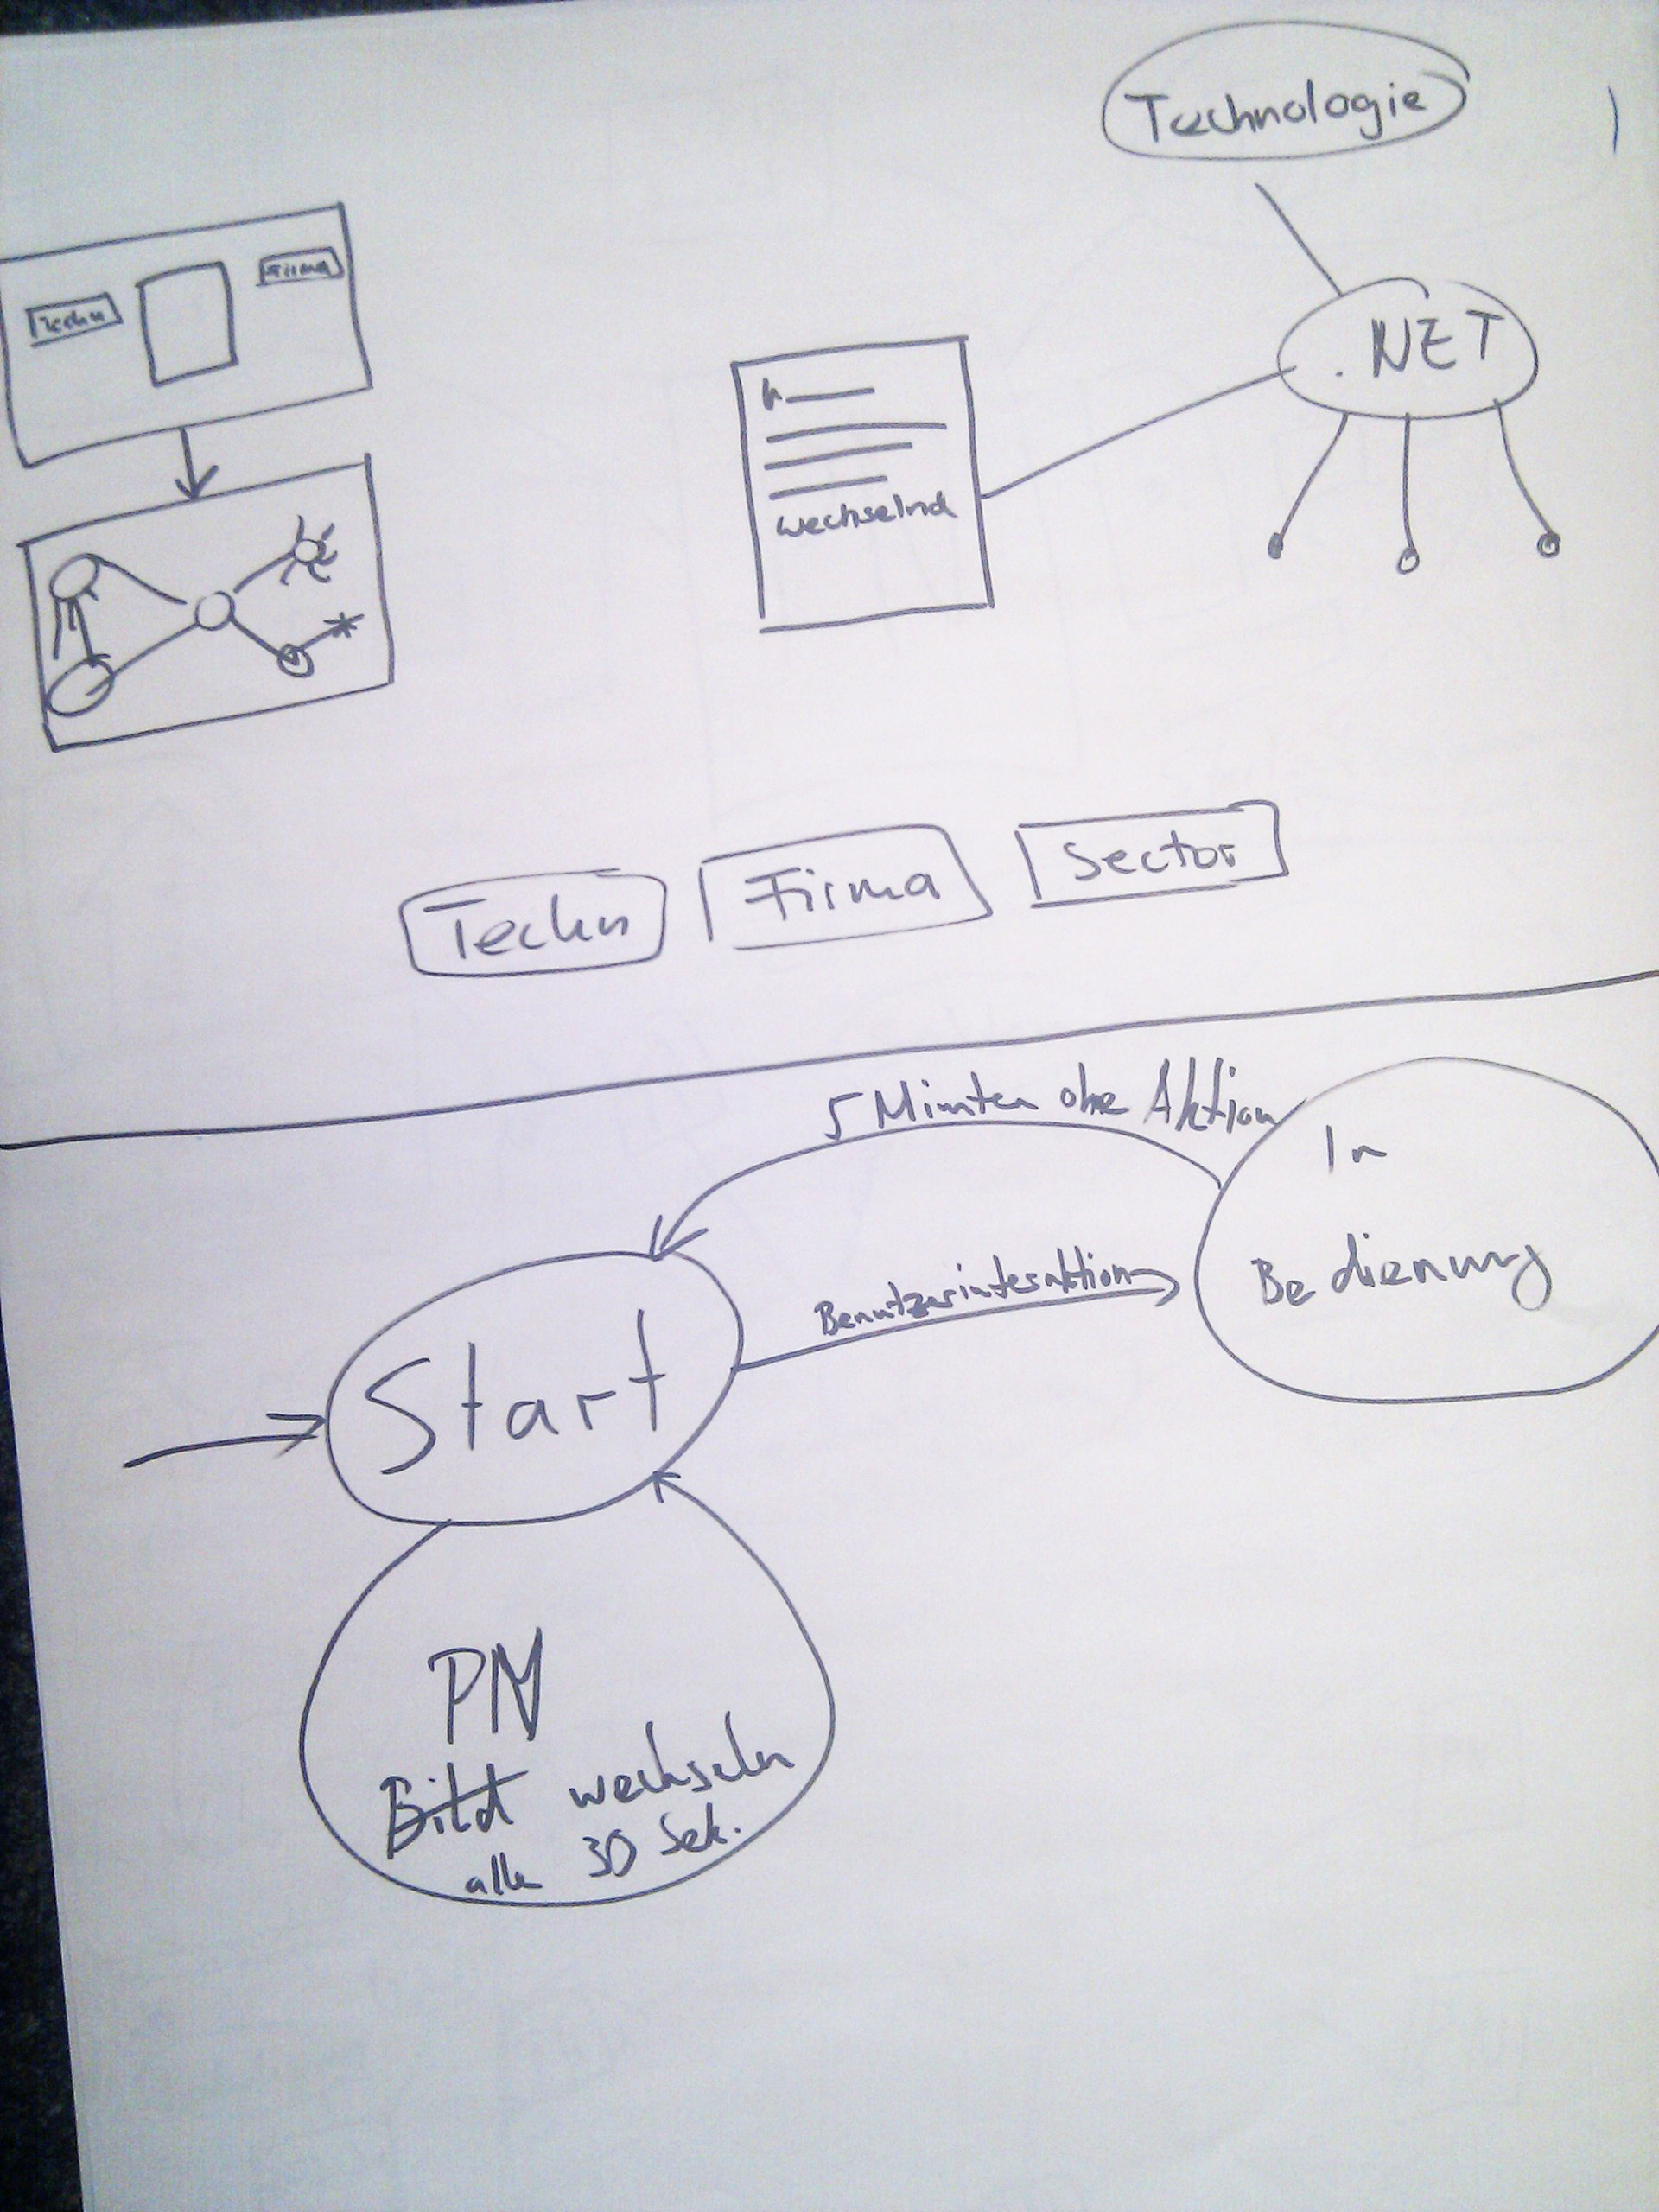 Technologie
Firma
Techn
.NET
wechselnd
Techn
Firma
Sector
5 Minuten ohne Aktion
In
Bedienung
Benutzerinteraktion
Start
Bild wechseln
alle 30 Sek.